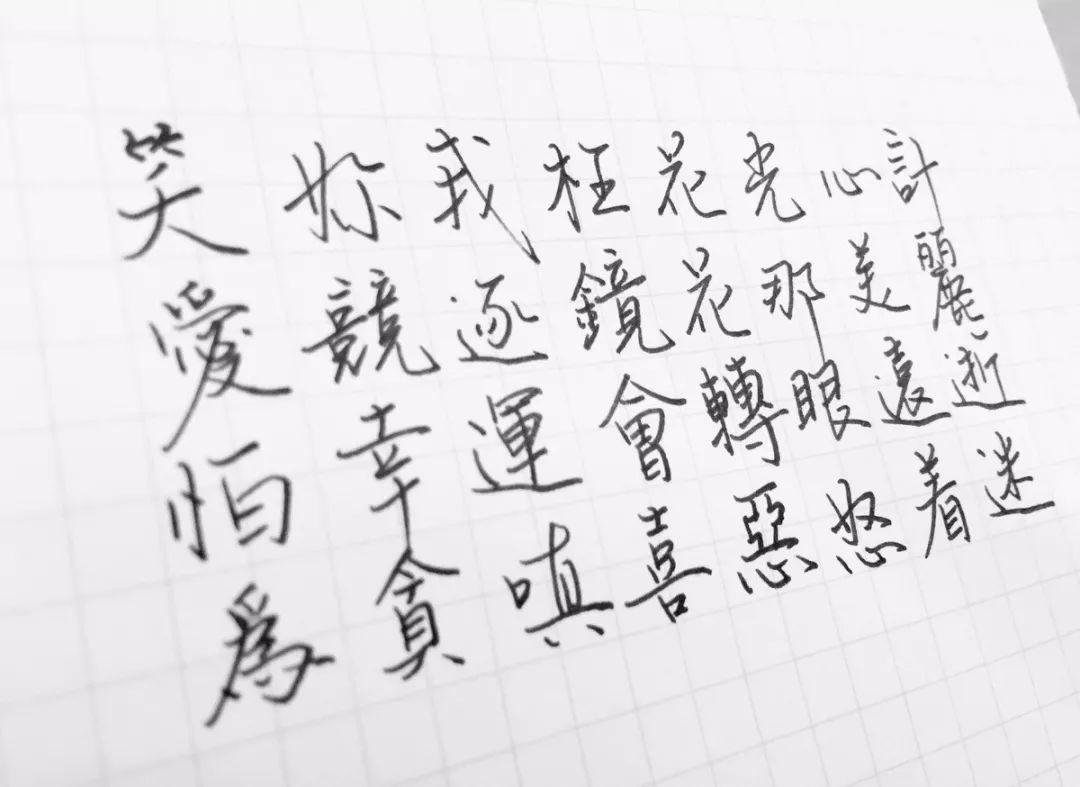 笑妳我枉花光心計
愛競逐鏡花那美麗
怕幸運會轉眼遠逝
為貪嗔喜惡怒着迷